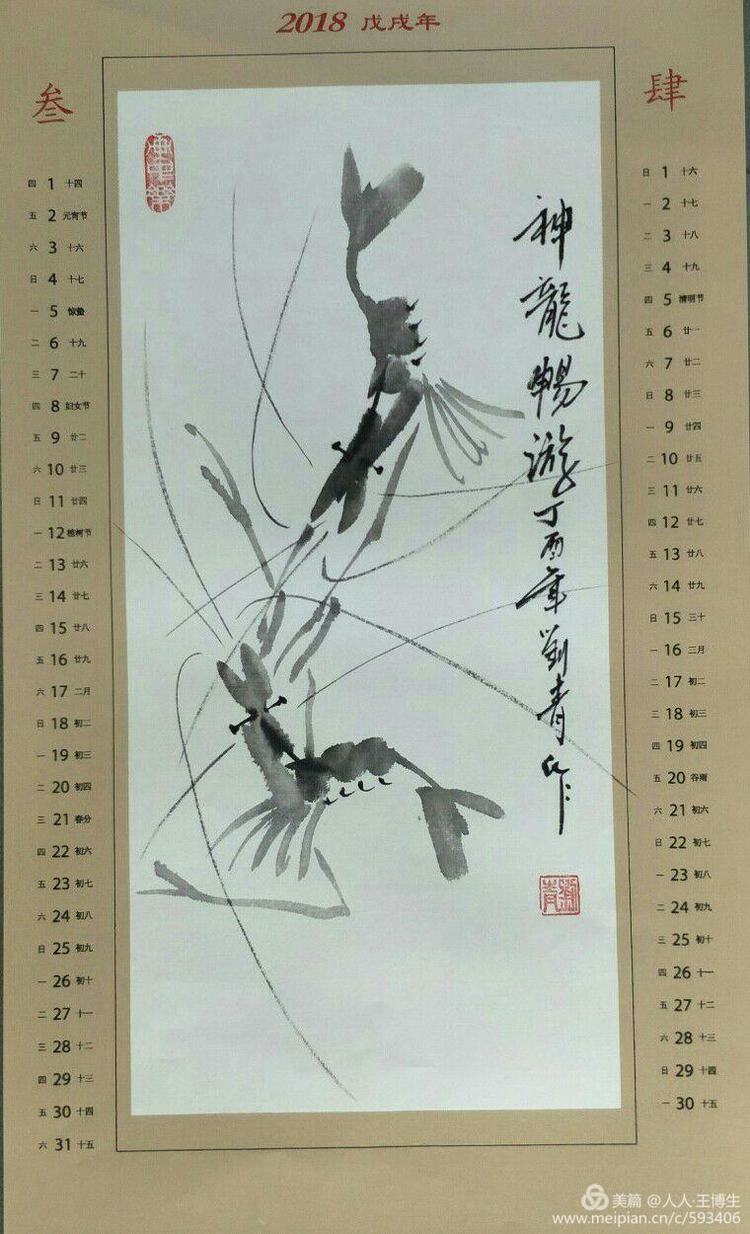 2018 戊戌年
叁
四 1 十四
五 2 元宵节
六 3 十六
日 4 十七
一 5 惊蛰
二 6 十九
三 7 二十
四 8 妇女节
五 9 廿二
六 10 廿三
日 11 廿四
一 12 植树节
二 13 廿六
三 14 廿七
四 15 廿八
五 16 廿九
六 17 二月
日 18 初二
一 19 初三
二 20 初四
三 21 春分
四 22 初六
五 23 初七
六 24 初八
日 25 初九
一 26 初十
二 27 十一
三 28 十二
四 29 十三
五 30 十四
六 31 十五
神龍暢游丁酉年劉青作
劉青
肆
日 1 十六
一 2 十七
二 3 十八
三 4 十九
四 5 清明节
五 6 廿一
六 7 廿二
日 8 廿三
一 9 廿四
二 10 廿五
三 11 廿六
四 12 廿七
五 13 廿八
六 14 廿九
日 15 三十
一 16 三月
二 17 初二
三 18 初三
四 19 初四
五 20 谷雨
六 21 初六
日 22 初七
一 23 初八
二 24 初九
三 25 初十
四 26 十一
五 27 十二
六 28 十三
日 29 十四
一 30 十五
美篇 @人人·王博生
www.meipian.cn/c/593406